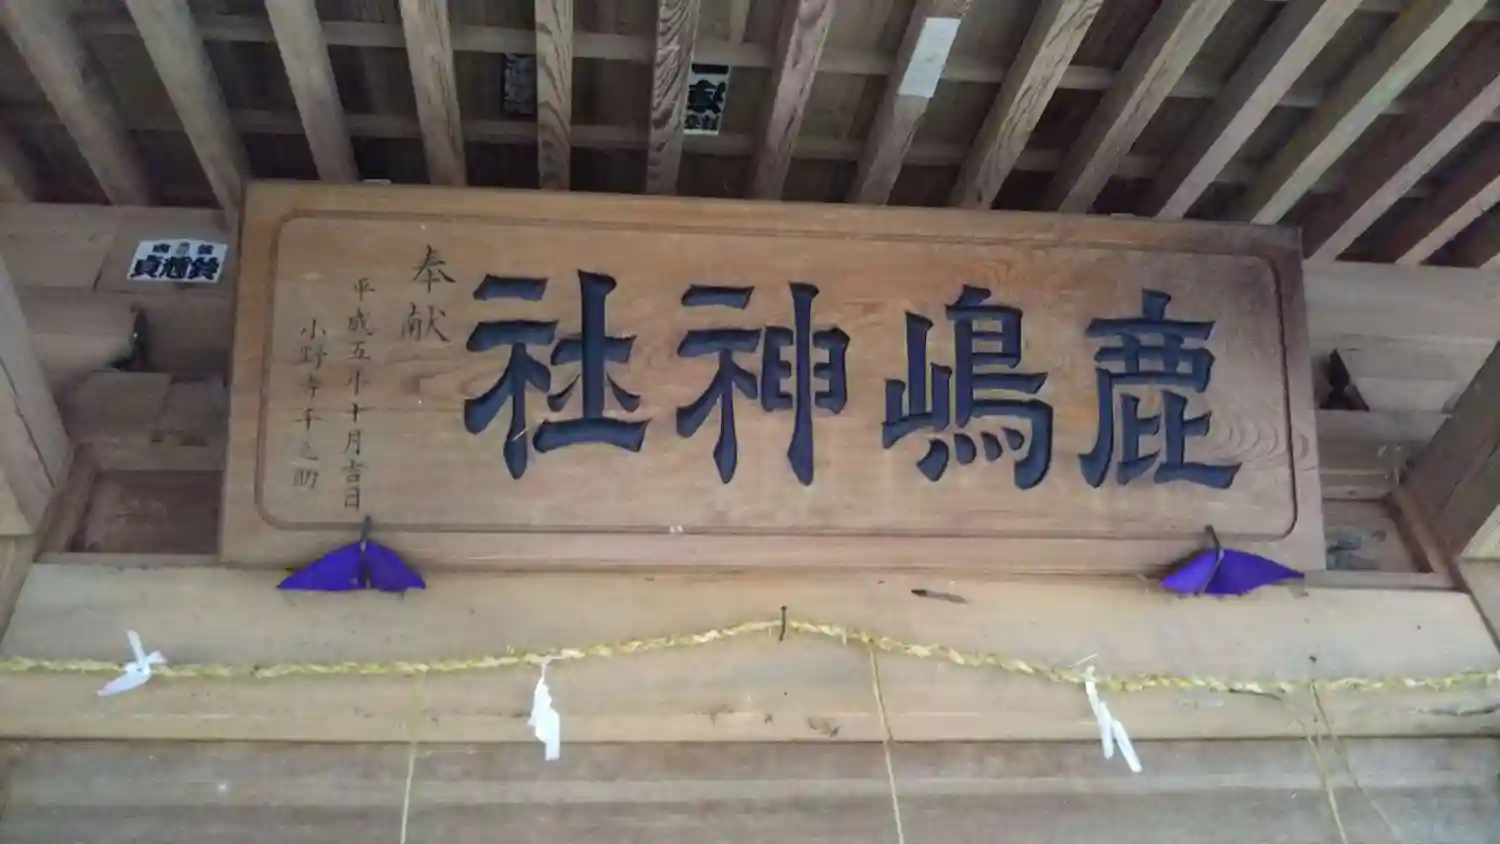 鹿嶋神社
奉献
平成五年十月吉日
小野寺平之助